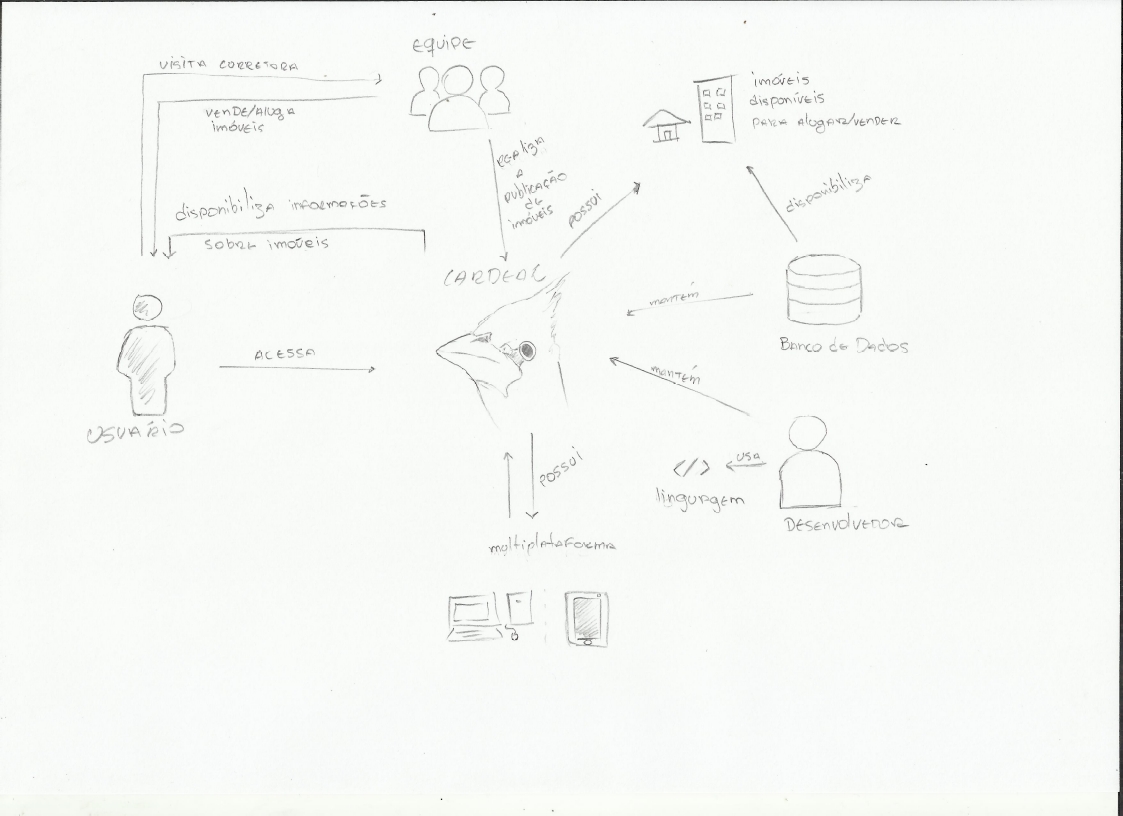 EQUIPE
VISITA CORRETORA
VENDE/ALUGA
imóveis
imóveis
disponíveis
PARA ALUGAR/VENDER
REALIZA
A
PUBLICAÇÃO
DE
imóveis
POSSUI
disponibiliza
disponibiliza INFORMAÇÕES
SOBRE imóveis
CARDEAL
MANTÉM
BANCO de DADOS
ACESSA
MANTÉM
USUÁRIO
POSSUI
</> USA
linguagem
DESENVOLVEDOR
multiplataforma